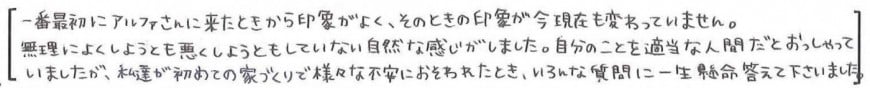 一番最初にアルファさんに来たときから印象がよく、そのときの印象が今現在も変わっていません。
無理によくしようとも悪くしようともしていない自然な感じがしました。自分のことを適当な人間だとおっしゃって
いましたが、私達が初めての家づくりで様々な不安におそわれたとき、いろんな質問に一生懸命答えて下さいました。